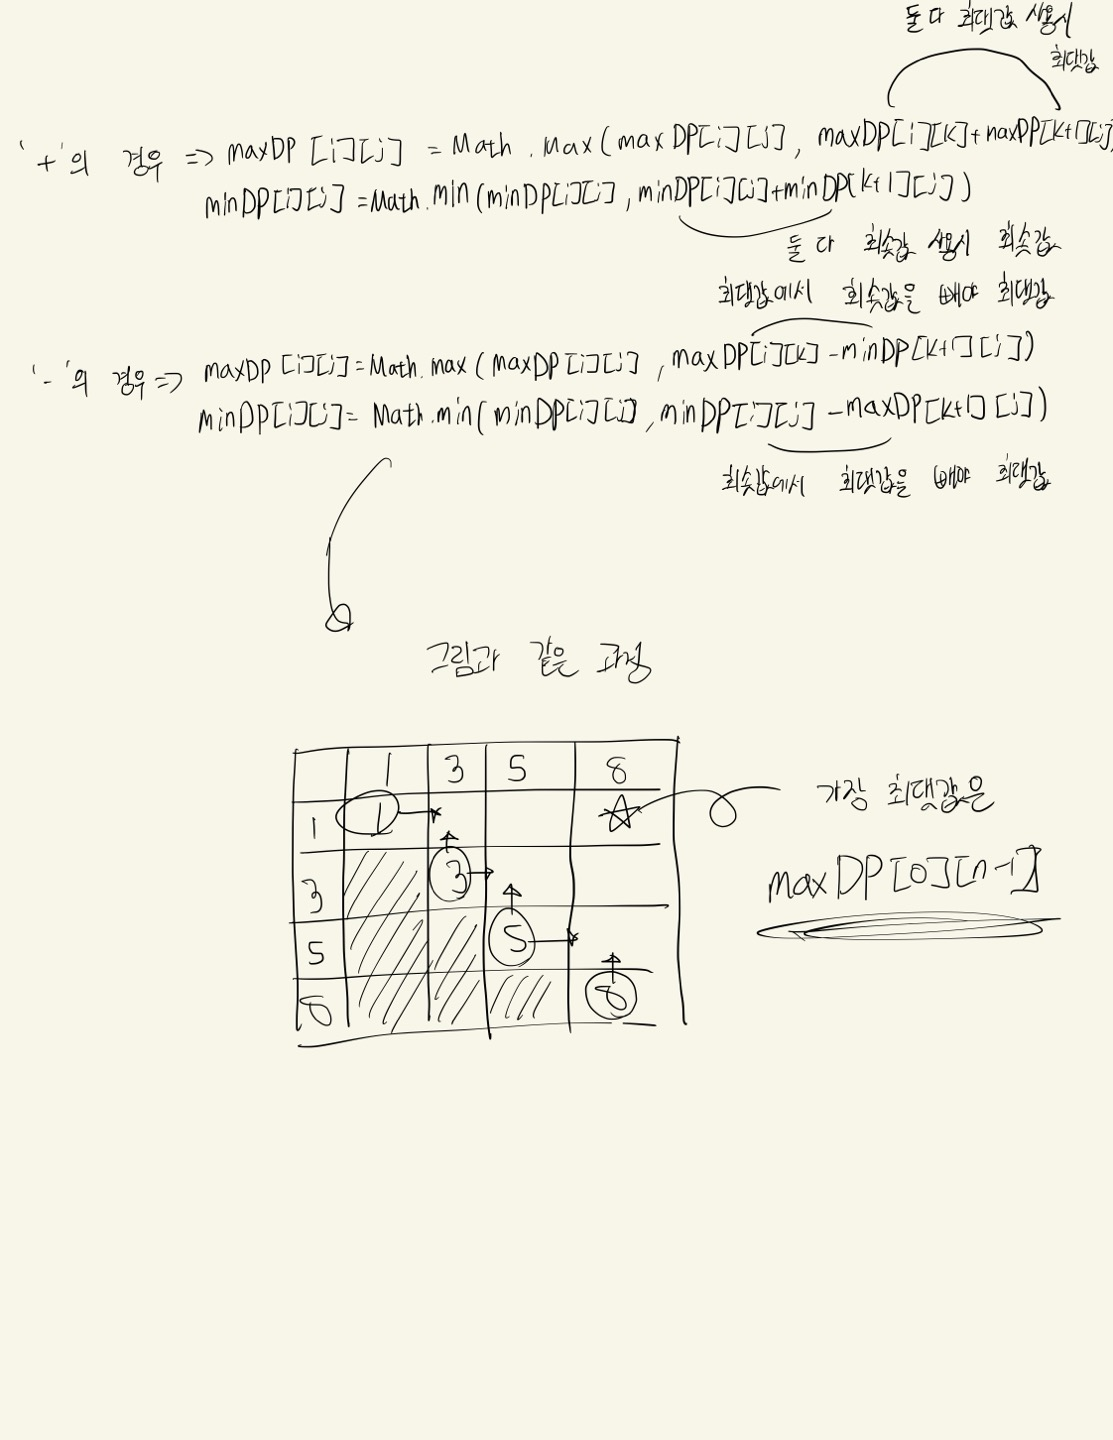 둘 다 최댓값 사용시
최댓값
'+'의 경우 => maxDP[i][j] = Math.Max(maxDP[i][j], maxDP[i][k]+maxDP[k+1][j]
minDP[i][j] = Math.min(minDP[i][j], minDP[i][j]+minDP[k+1][j])
둘 다 최솟값 사용시 최솟값
최댓값에서 최솟값을 빼야 최댓값
'-'의 경우 => maxDP[i][j] = Math.max(maxDP[i][j], maxDP[i][k]-minDP[k+1][j])
minDP[i][j] = Math.min(minDP[i][j], minDP[i][j]-maxDP[k+1][j])
최솟값에서 최댓값을 빼야 최댓값
그림과 같은 과정
1 3 5 8
1 1
3 3
5 5
8 8
가장 최댓값은
maxDP[0][n-1]